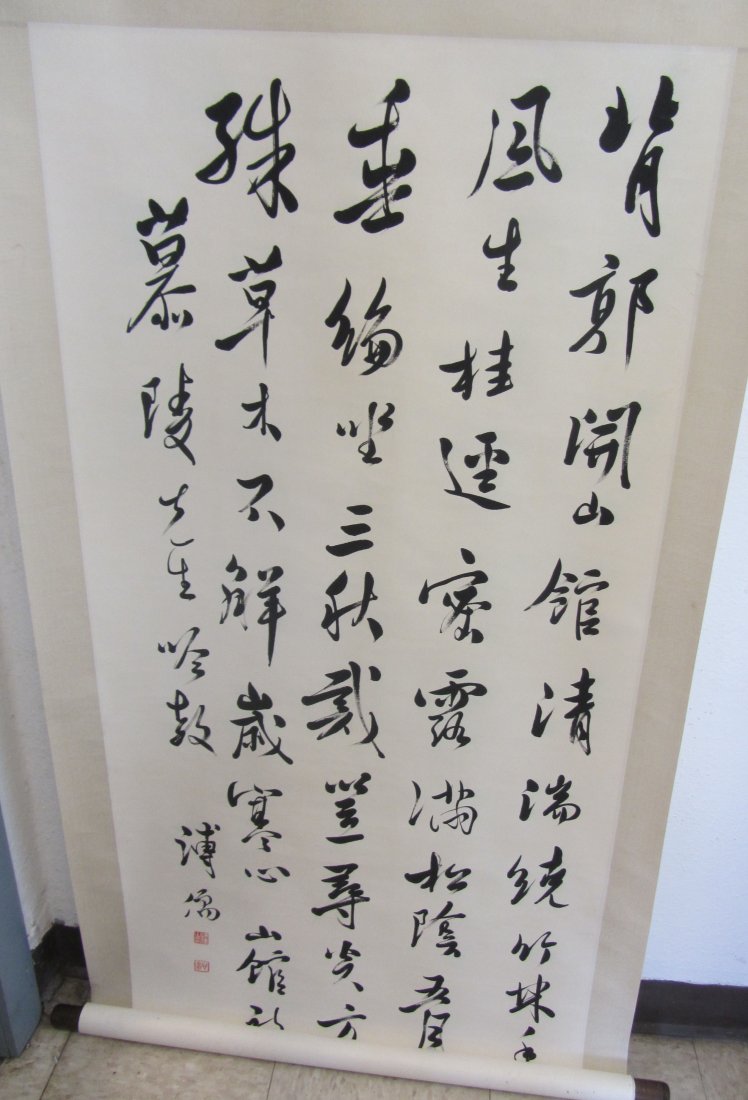 背郭開山館清湍繞竹林香
風生桂逕密露滿松陰五月
垂綸坐三秋戴笠尋炎方
殊草木不解歲寒心 山館
慕陵先生吟教
溥儒